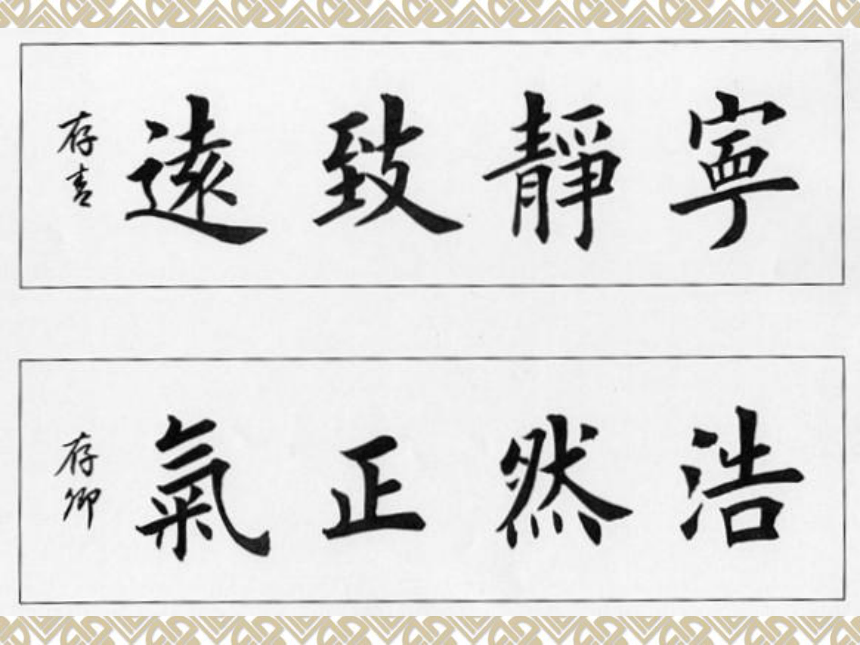 寧靜致遠
存
浩然正氣
存卿